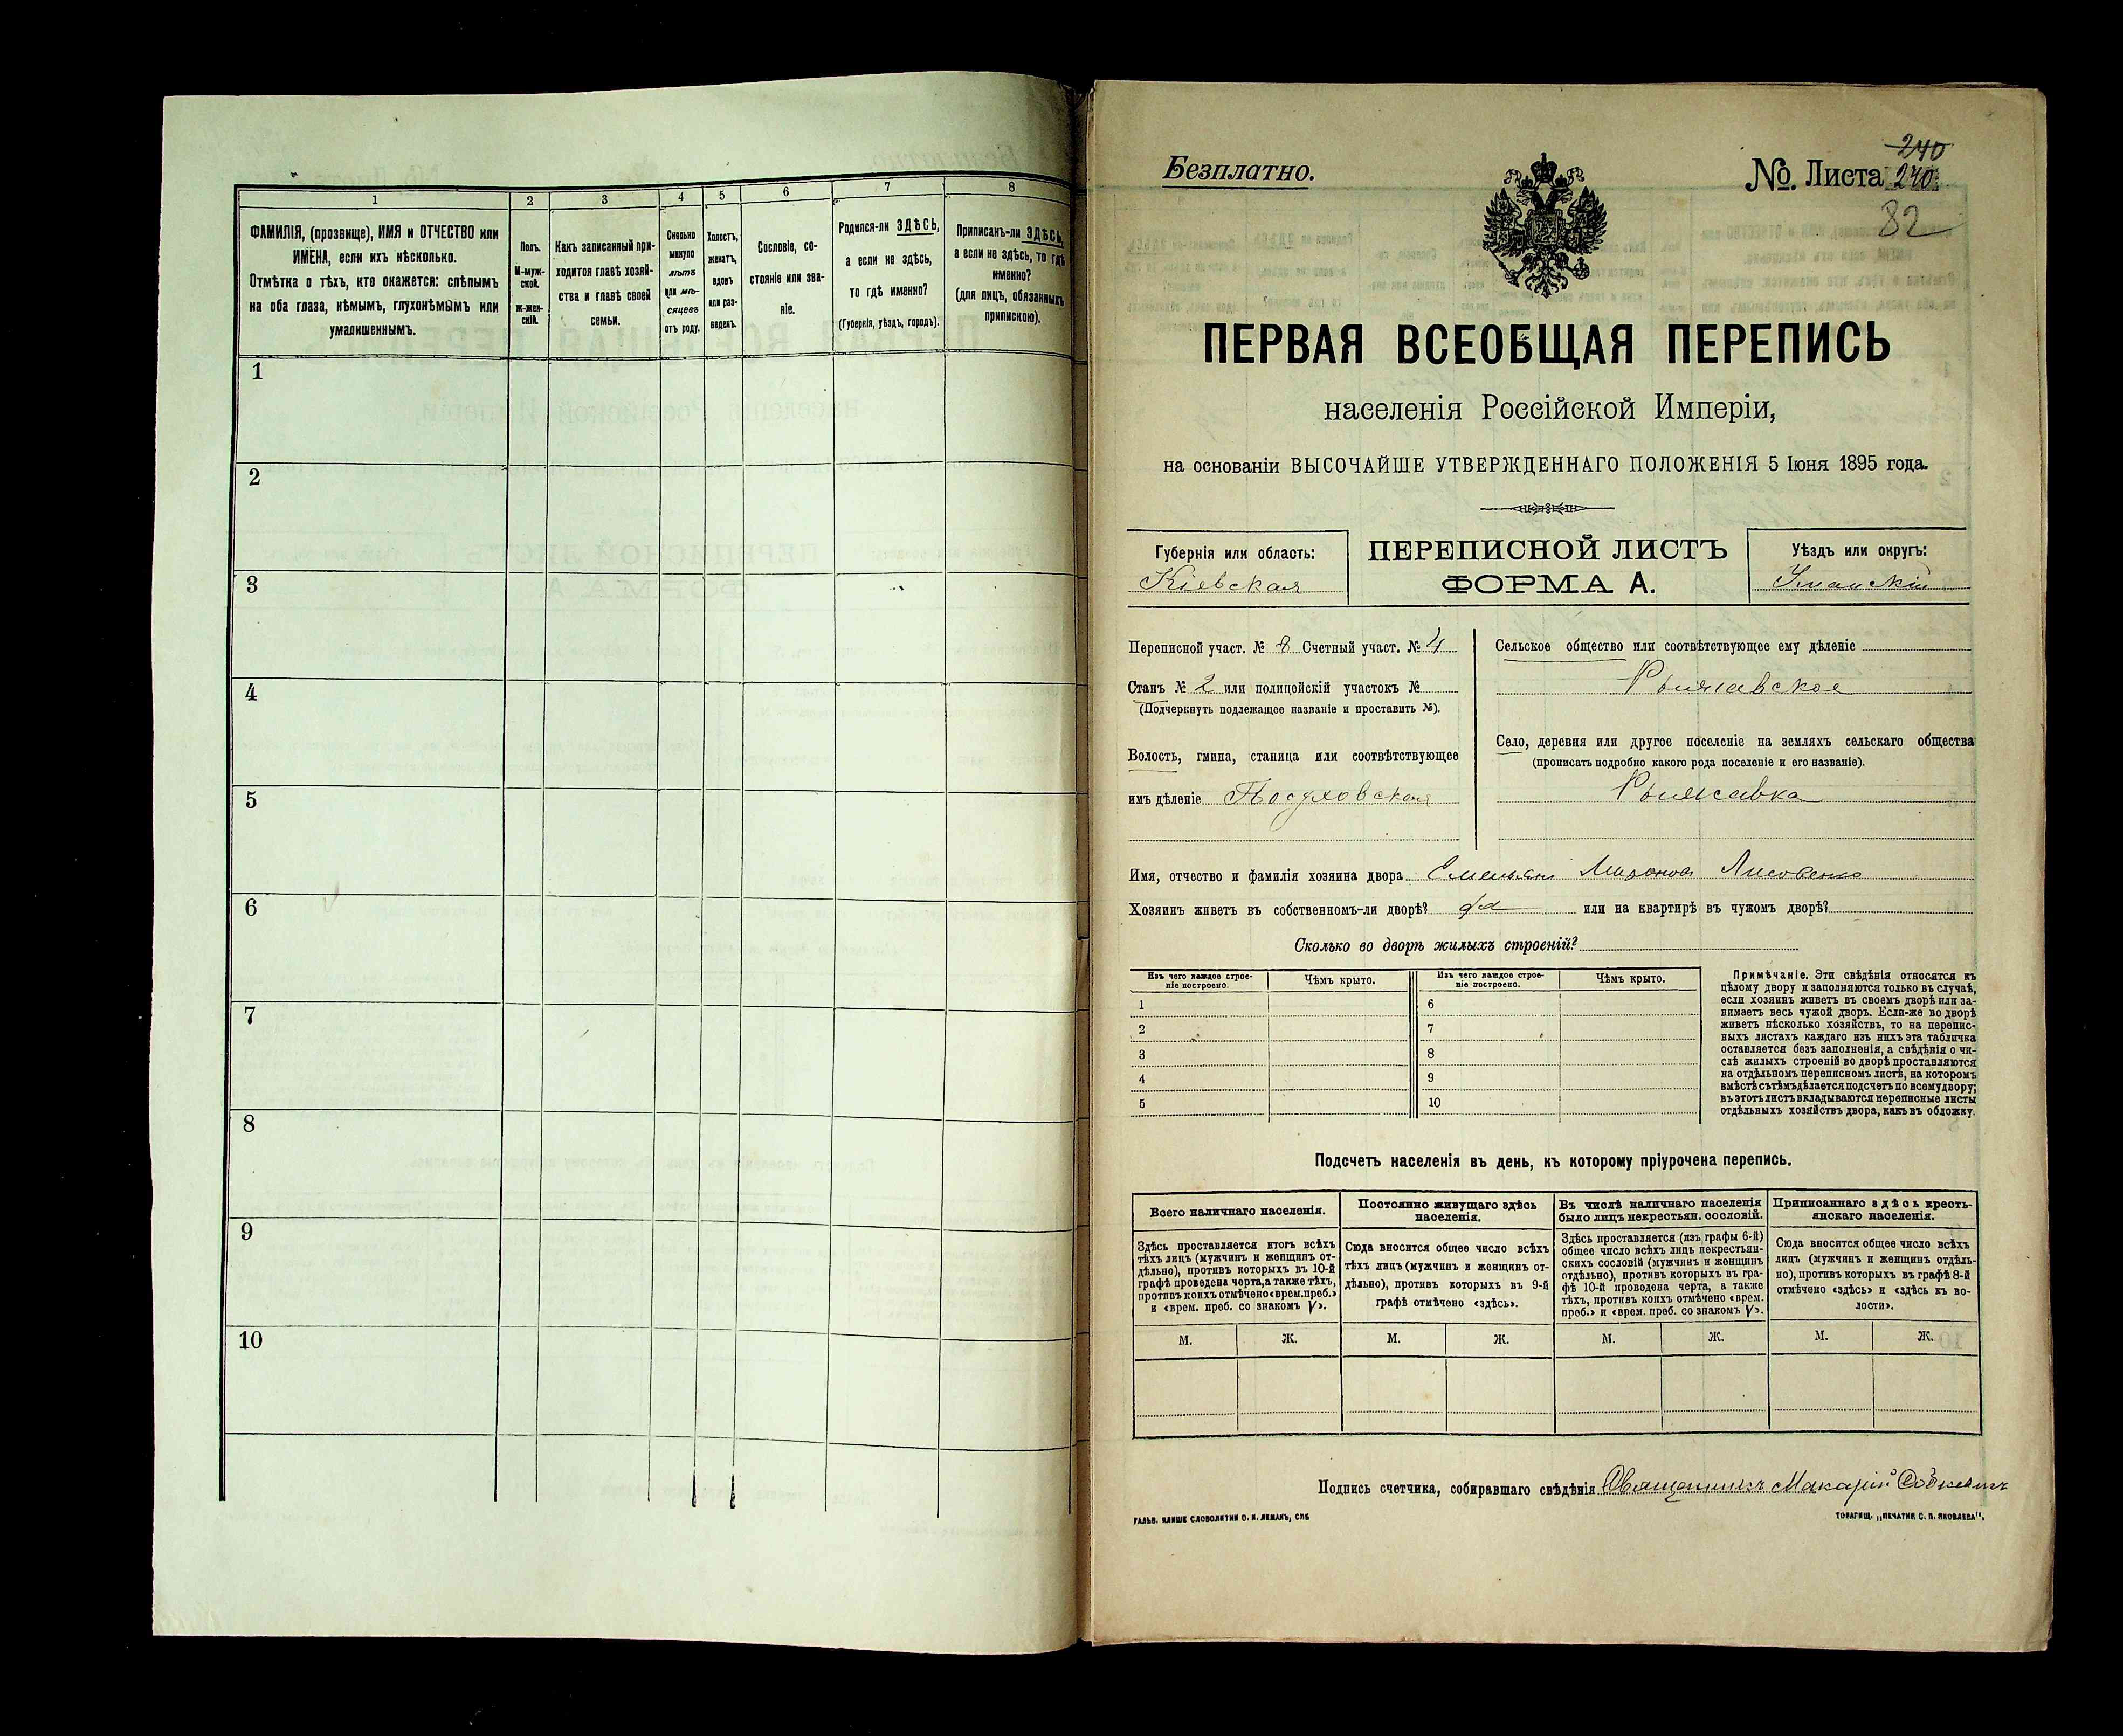 1 2 3 4 5 6 7 8
ФАМИЛІЯ, (прозвище), ИМЯ и ОТЧЕСТВО или
ИМЕНА, если ихъ нѣсколько.
Отмѣтка о тѣхъ, кто окажется: слѣпымъ
на оба глаза, нѣмымъ, глухонѣмымъ или
умалишеннымъ.
Полъ.
М-муж-
ской.
Ж-жен-
скій.
Какъ записанный при-
ходится главѣ хозяй-
ства и главѣ своей
семьи.
Сколько
минуло
лѣтъ
или мѣ-
сяцевъ
отъ роду.
Холостъ,
женатъ,
вдовъ
или раз-
веденъ.
Сословіе, со-
стояніе или зва-
ніе.
Родился-ли ЗДѢСЬ,
а если не здѣсь,
то гдѣ именно?
(Губернія, уѣздъ, городъ).
Приписанъ-ли ЗДѢСЬ,
а если не здѣсь, то гдѣ
именно?
(для лицъ, обязанныхъ
припискою).
1
2
3
4
5
6
7
8
9
10
Безплатно.
240
№. Листа 240
82
ПЕРВАЯ ВСЕОБЩАЯ ПЕРЕПИСЬ
населенія Россійской Имперіи,
на основаніи ВЫСОЧАЙШЕ УТВЕРЖДЕННАГО ПОЛОЖЕНІЯ 5 Іюня 1895 года.
Губернія или область:
Кіевская
ПЕРЕПИСНОЙ ЛИСТЪ
ФОРМА А.
Уѣздъ или округъ:
Уманскій
Переписной участ. № 8 Счетный участ. № 4
Станъ № 2 или полицейскій участокъ №
(Подчеркнуть подлежащее названіе и проставить №).
Волость, гмина, станица или соотвѣтствующее
имъ дѣленіе Посуховская
Сельское общество или соотвѣтствующее ему дѣленіе
Рыжавское
Село, деревня или другое поселеніе на земляхъ сельскаго общества
(прописать подробно какого рода поселеніе и его названіе).
Рыжавка
Имя, отчество и фамилія хозяина двора Емельянъ Миронов Лисовенко
Хозяинъ живетъ въ собственномъ-ли дворѣ? да или на квартирѣ въ чужомъ дворѣ?
Сколько во дворѣ жилыхъ строеній?
Изъ чего каждое строе-
ніе построено.
Чѣмъ крыто.
Изъ чего каждое строе-
ніе построено.
Чѣмъ крыто.
1 6
2 7
3 8
4 9
5 10
Примѣчаніе. Эти свѣдѣнія относятся къ
цѣлому двору и заполняются только въ случаѣ,
если хозяинъ живетъ въ своемъ дворѣ или за-
нимаетъ весь чужой дворъ. Если-же во дворѣ
живетъ нѣсколько хозяйствъ, то на перепис-
ныхъ листахъ каждаго изъ нихъ эта табличка
оставляется безъ заполненія, а свѣдѣнія о чи-
слѣ жилыхъ строеній во дворѣ проставляются
на отдѣльномъ переписномъ листѣ, на которомъ
вмѣстѣ съ тѣмъ дѣлается подсчетъ по всему двору;
въ этотъ листъ вкладываются переписные листы
отдѣльныхъ хозяйствъ двора, какъ въ обложку.
Подсчетъ населенія въ день, къ которому пріурочена перепись.
Всего наличнаго населенія.
Здѣсь проставляется итогъ всѣхъ
тѣхъ лицъ (мужчинъ и женщинъ от-
дѣльно), противъ которыхъ въ 10-й
графѣ проведена черта, а также тѣхъ,
противъ коихъ отмѣчено «врем. преб.»
и «врем. преб. со знакомъ V».
Постоянно живущаго здѣсь
населенія.
Сюда вносится общее число всѣхъ
тѣхъ лицъ (мужчинъ и женщинъ от-
дѣльно), противъ которыхъ въ 9-й
графѣ отмѣчено «здѣсь».
Въ числѣ наличнаго населенія
было лицъ некрестьян. сословій.
Здѣсь проставляется (изъ графы 6-й)
общее число всѣхъ лицъ некрестьян-
скихъ сословій (мужчинъ и женщинъ
отдѣльно), противъ которыхъ въ гра-
фѣ 10-й проведена черта, а также
тѣхъ, противъ коихъ отмѣчено «врем.
преб.» и «врем. преб. со знакомъ V».
Приписаннаго здѣсь кресть-
янскаго населенія.
Сюда вносится общее число всѣхъ
лицъ (мужчинъ и женщинъ отдѣль-
но), противъ которыхъ въ графѣ 8-й
отмѣчено «здѣсь» и «здѣсь къ во-
лости».
М. Ж. М. Ж. М. Ж. М. Ж.
Подпись счетчика, собиравшаго свѣдѣнія Священникъ Макарій
ГАЛЬВ. КЛИШЕ СЛОВОЛИТНИ О. И. ЛЕМАНЪ, СПБ
ТОВАРИЩ. „ПЕЧАТНЯ С. П. ЯКОВЛЕВА“,